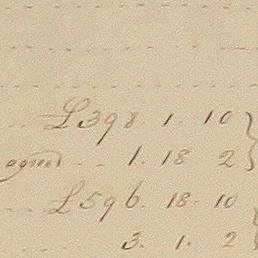 £398. 1. 10
agreed - - 1. 18 2
£596. 18. 10
3. 1. 2